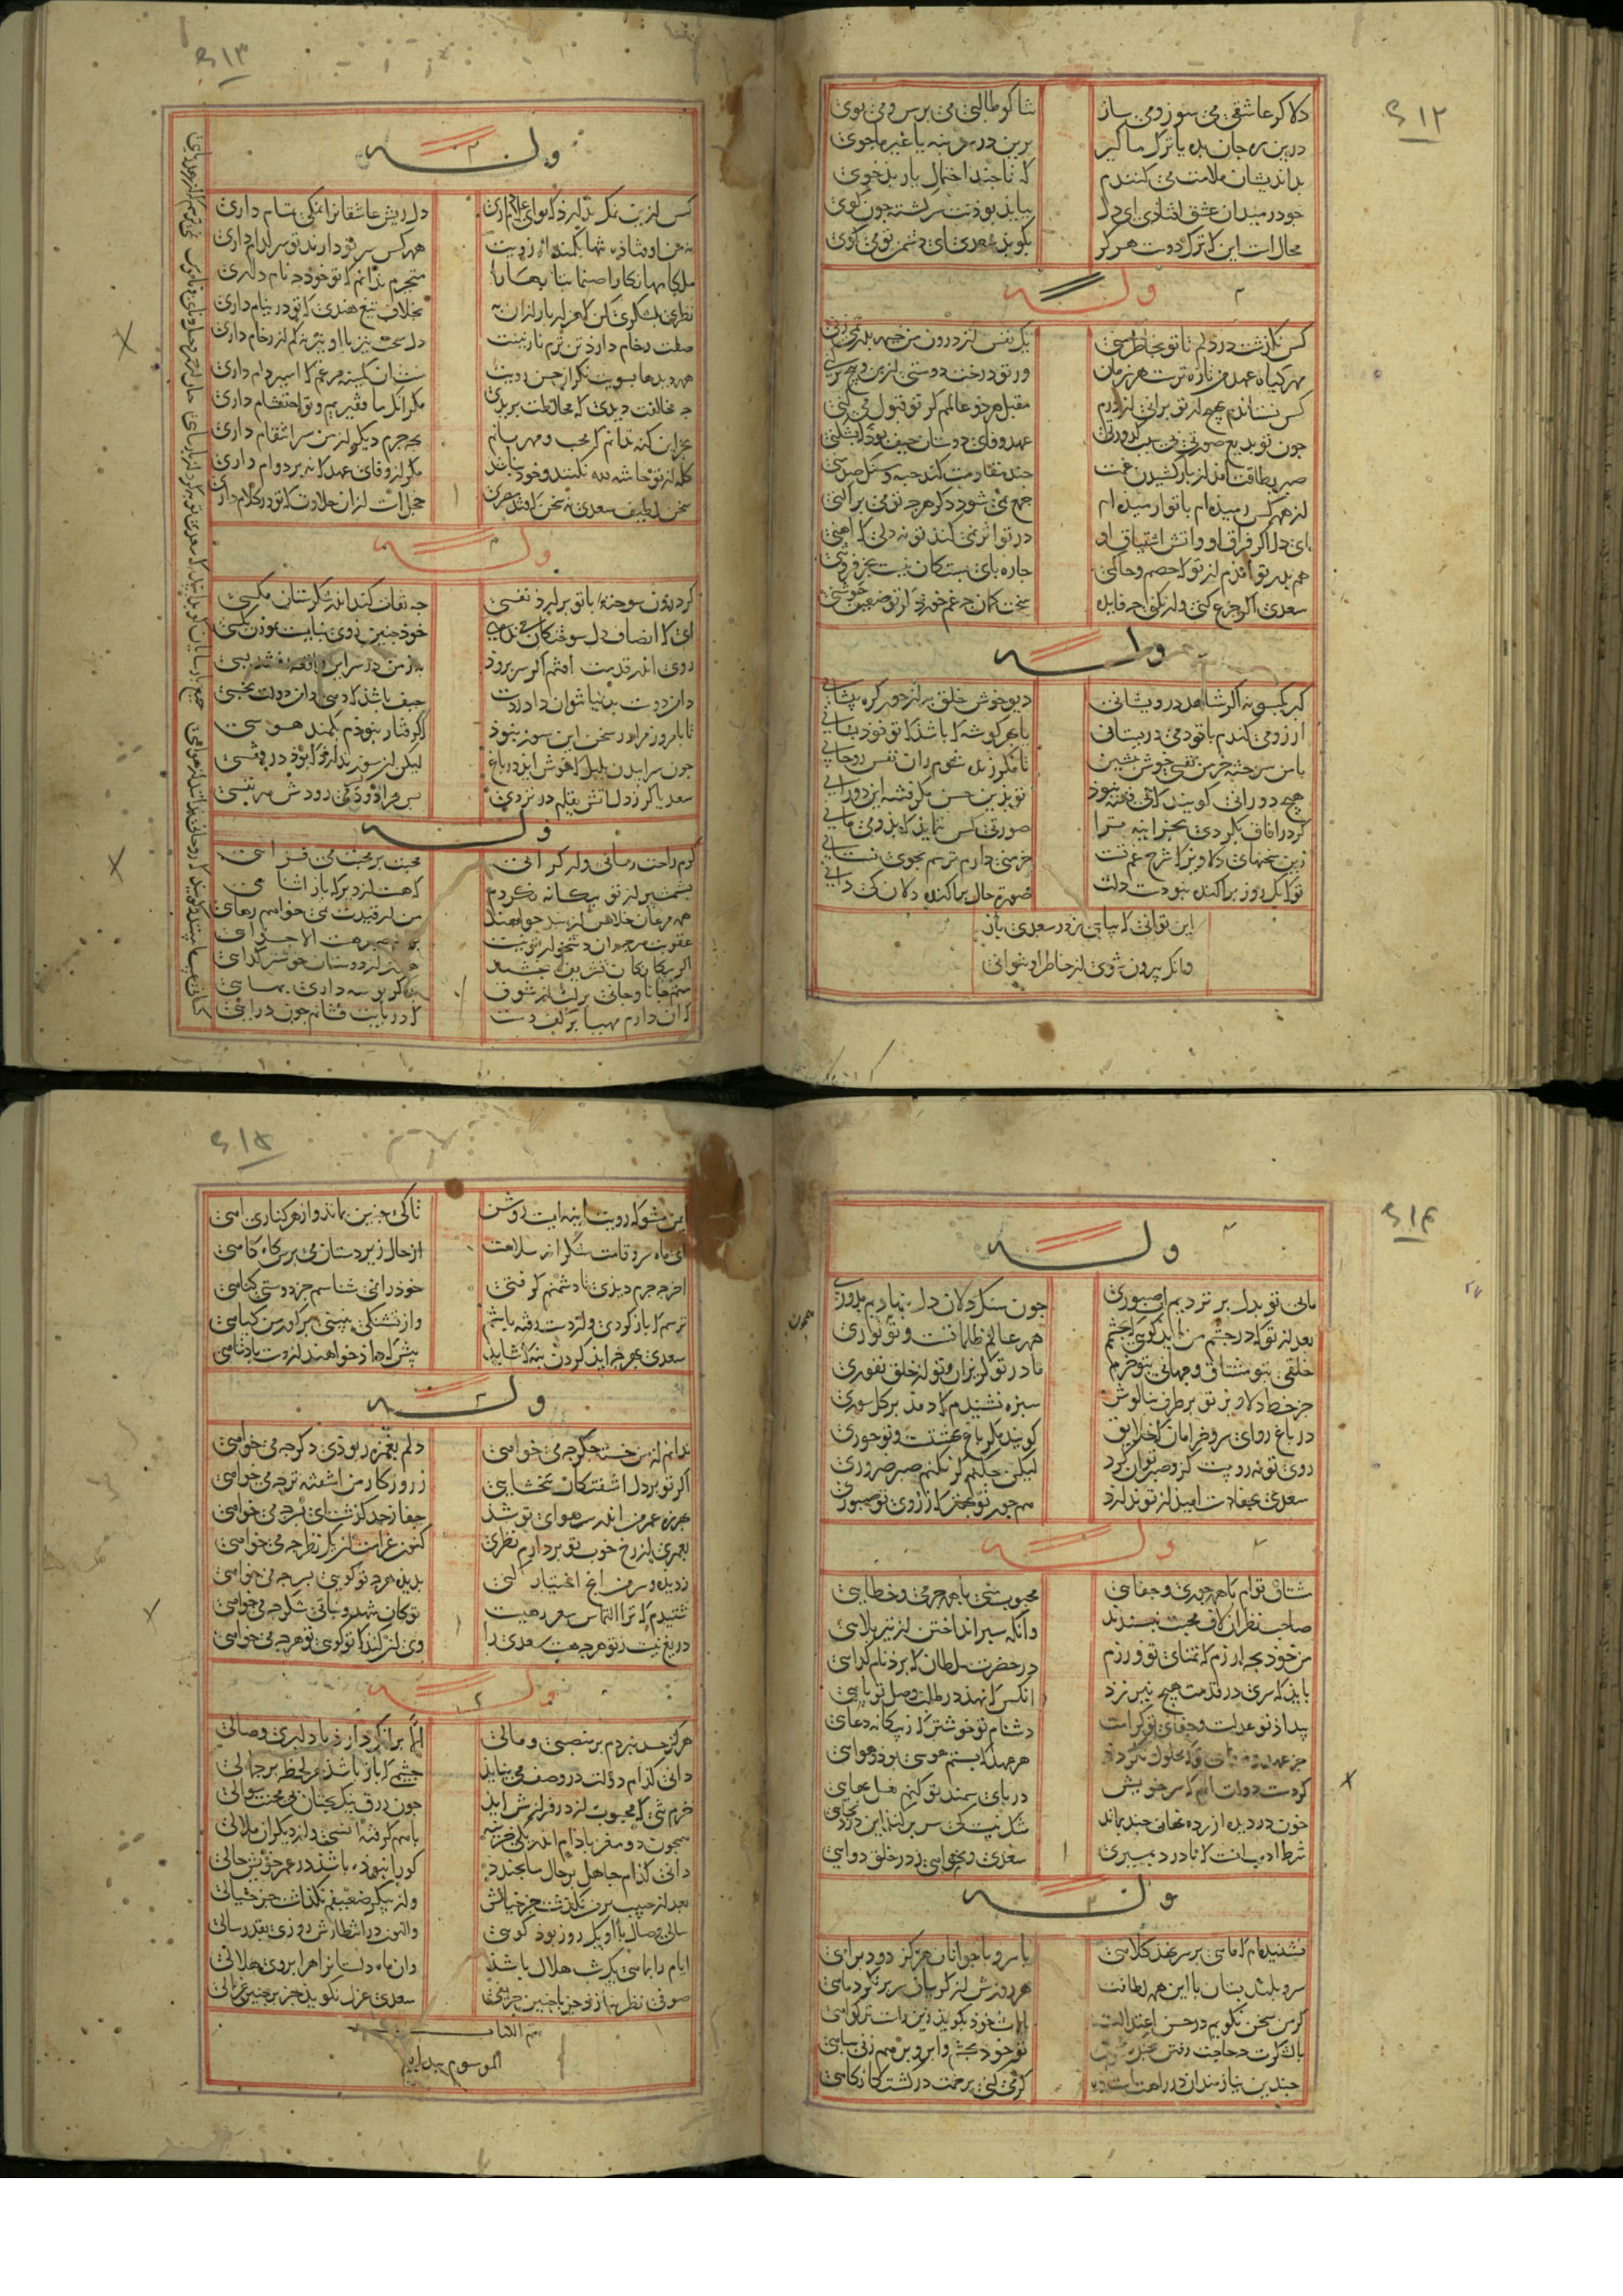 ۶۱۲
دلا کر عاشقی می سوز و می ساز
تنا کو طالبی می برس و می بوی
درین ره جان بده یا ترک ما کیر
برین در سر بنه یا غیر ما جوی
بداندیشان ملامت می کنندم
که تا جند احتمال یار بدخوی
جو در میدان عشق افتادی ای دل
بباید بوذنت سرکشته جون کوی
محال است این که ترک دوست هرکز
بکوید سعدی ای دشمن تو می کوی
وله
کس نکذشت در دلم تا تو بخاطر منی
یک نفس از درون من خیمه بدر نمی زنی
مهر کیاه عهد من تازه ترست هر زمان
ور تو درخت دوستی از بن و بیخ برکنی
کس نستاندم بهیج ار تو برانی از درم
مقبل هر دو عالمم کر تو قبول می کنی
جون تو بدیع صورتی بی سبب کدورتی
عهد وفای دوستان حیف بود که بشکنی
صبر بطاقت آمد از بار کشیدن غمت
جند مقاومت کند حبه و سنک صد منی
از همه کس رمیده ام با تو ارمیده ام
جمع نمی شود دکر هرجه تو می براکنی
ای دل اکر فراق او واتش اشتیاق او
در تو اثر نمی کند تو نه دلی که اهنی
هم بدر تو آمدم از تو که خصم و حاکمی
جاره بای بستکان نیست بجز فروتنی
سعدی اکر جزع کنی ور نکنی جه فایده
سخت کمان جه غم خورد کر تو ضعیف جوشنی
وله
کبر یکسو نه اکر شاهد درویشانی
دیو خوش خلق به از حور کره بیشانی
ارزو می کندم با تو دمی در بستان
یا بهر کوشه که باشذ که تو خوذ بستانی
با من سوخته خرمن نفسی خوش بنشین
تا مکر زنده شوم زان نفس روحانی
هیج دورانی کویند که بی فتنه نبوذ
تو بذین حسن مکر فتنه این دورانی
کر در افاق بکردی بجز اینه ترا
صورتی کس ننماید که بذو می مانی
زین سخنهای دلاویز که شرح غم تست
خرمنی دارم ترسم بجوی نستانی
تو که یک روز براکنده نبودست دلت
صورت حال براکنده دلان کی دانی
این توانی که نیایی ز در سعدی باز
وانکه بیرون شوی از خاطر او نتوانی
۶۱۳
وله
کس ازین نمک ندارد که تو ای غلام داری
دل ریش عاشقانرا نمکی تمام داری
نه من اوفتاده تنها بکمند ارزویت
همه کس سر تو دارند تو سر کدام داری
ملکا مها نکارا صنما بتا بهارا
متحیرم ندانم که تو خوذ جه نام داری
نظری بلشکری کن که هزار بار ازان به
بخلاف تیغ هندی که تو در نیام داری
صفت رخام دارد تن نرم نازنینت
دل سخت نیز با او نه کم از رخام داری
همه دیدها بسویت نکران حسن رویت
منت ان کمینه مرغم که اسیر دام داری
جه مخالفت بدیدی که مخالطت بریدی
مکر انک ما فقیریم و تو احتشام داری
بجز این کنه ندانم کر محب و مهربانم
بجه جرم دیکر از من سر انتقام داری
کله از تو حاشه لله نکنند و خود نباشد
مکر از وفای عهدی که نه بر دوام داری
سخن لطیف سعدی نه سخن که قند مصری
خجل است ازان حلاوت که تو در کلام داری
وله
کر درون سوخته با تو برارذ نفسی
جه تفاوت کند اندر شکرستان مکسی
ای که انصاف دل سوختکان می ندهی
خوذ جنین روی نبایست نموذن بکسی
روی اندر قدمت افتم اکر سر بروذ
به ز من در سر این واقعه رفتند بسی
دامن دوست بدنیا نتوان داد ز دست
حیف باشذ که دهی دامن دولت بخسی
تا بامروز مرا در سخن این سوز نبوذ
که کرفتار نبوذم بکمند هوسی
جون سراییدن بلبل که خوش ایذ در باغ
لیکن از سوز ندارذ که بود در قفسی
سعدیا کر ز دل اتش بقلم در نزدی
بس جرا دوذ کند روذش هر نفسی
وله
کرم راحت رسانی ور کزایی
محبت بر محبت می فزایی
بشمشیر از تو بیکانه نکردم
که هست از دیرکه باز اشنایی
همه مرغان خلاص از بند خواهند
من از قیدت نمی خواهم رهایی
عقوبت هرجه ازان دشخوارتر نیست
بر انم صبر هست الا جدایی
اکر بیکانکان تشریف بخشند
هنوز از دوستان خوشتر کدایی
منم جانا و جانی بر لب از شوق
بده کر بوسه داری بهایی
کسان دارم مهیا بر کف دست
که در بایت فشانم جون درایی
۶۱۴
وله
مانی تو بدل برنزدیم اب صبوری
جون سنک دلان دل بنهادیم بدوری
بعد از تو که در جشم من اید که بجشمم
همه عالم ظلماتست و تو نوری
خلقی بتو مشتاق و جهانی بتو خرم
ما در تو کریزان و تو از خلق نفوری
جز خط دلاویز تو بر طرف بناکوش
سبزه نشنیدم که دمد بر کل سوری
در باغ روای سرو خرامان که خلایق
کویند مکر باغ بهشتست و تو حوری
روی تو نه رویست کزو صبر توان کرد
لیکن جکنم کر نکنم صبر ضروری
سعدی بجفا دست امید از تو ندارد
هم جور تو بهتر که ز روی تو صبوری
وله
مشتاق توام با همه جوری و جفایی
محبوب منی با همه جرمی و خطایی
صاحب نظران لاف محبت نبسندند
وانکه سبر انداختن از تیر بلایی
من خود بجه ارزم که تمنای تو ورزم
در حضرت سلطان که برذ نام کدایی
باید که سری در قدمت هیج نیرزد
انکس که نهذ در طلب وصل تو بایی
بیداد تو عدلست و جفای تو کرامت
دشنام تو خوشتر که ز بیکانه دعایی
هر عهد که بستم هوسی بود و هوایی
کر دست دولت انم که سر خویش
در بای سمند تو کنم نعل بهایی
خون در دل ازرده نهان جند بماند
شک نیست که سر برکند این درد بجایی
شرط ادب انست که با درد بمیری
سعدی و نخواهی ز در خلق دوایی
وله
نشنیده ام که ماهی بر سر نهذ کلاهی
یا سرو با جوانان هرکز رود براهی
سرو بلند بستان با این همه لطافت
هر روزش از کریبان سر برنکرد ماهی
کر من سخن نکویم در حسن اعتدالت
بالات خوذ بکویذ زین راست تر کواهی
تو خود بجشم و ابرو برهم زنی سباهی
جندین نیازمندان در راهت
کر می کنی برحمت در کشتکان نکاهی
۶۱۵
ایمن مشو که رویت اینه ایست روشن
تا کی جنین بماند واز هر کناری اهی
ای ماه سرو قامت شکرانه سلامت
از حال زیردستان می برس کاه کاهی
اخر جه جرم دیدی تا دشمنم کرفتی
خود را نمی شناسم جز دوستی کناهی
ترسم که باز کردی واز دست رفته باشم
واز تشنکی نبینی بر کور من کیاهی
سعدی بهرجه اید کردن بنه که شاید
بیش که داد خواهند از دست بادشاهی
وله
ندانم از من خسته جکر جه می خواهی
دلم بغمزه ربوذی دکر جه می خواهی
اکر تو بر دل اشفتکان نبخشایی
ز روزکار من اشفته تر جه می خواهی
بهرزه عمر من اندر سر هوای تو شد
جفا ز حد کذشت ای بسر جه می خواهی
بعمری از رخ خوب تو برده ام نظری
کنون غرامت ان یک نظر جه می خواهی
ز دیده و سر من انج اختیار کنی
بدیده هرجه تو کویی بسر جه می خواهی
شنیدم که ترا التماس شعر رهیست
تو کان شهد و نباتی شکر جه می خواهی
دریغ نیست ز تو هرجه هست سعدی را
وی ان کند که تو کویی تو هرجه می خواهی
وله
هرکز حسد نبردم بر منصبی و مالی
الا بر انک دارذ با دلبری وصالی
دانی کذام دولت در وصف می نیاید
جشمی که باز باشد هر لحظه بر جمالی
خرم تنی که محبوب از در فرازش اید
جون رزق نیکبختان بی محنت سوالی
همجون دو مغز باذام اندر یکی خزینه
باهم کرفته انسی واز دیکران ملالی
دانی کذام جاهل بر حال ما بخندد
کو را نبوذه باشذ در عمر خویش حالی
بعد از حبیب بر من نکذشت جز خیالش
واز بیکر ضعیفم نکذاشت جز خیالی
سالی وصال با او یک روز بوذ کویی
واکنون در انتظارش روزی بقدر سالی
ایام را بماهی یک شب هلال باشد
وان ماه دلستانرا هر ابرویی هلالی
صوفی نظر نبازد جز با جنین حریفی
سعدی غزل نکوید جز بر جنین غزالی
تم الکتاب
الموسوم ببدایع